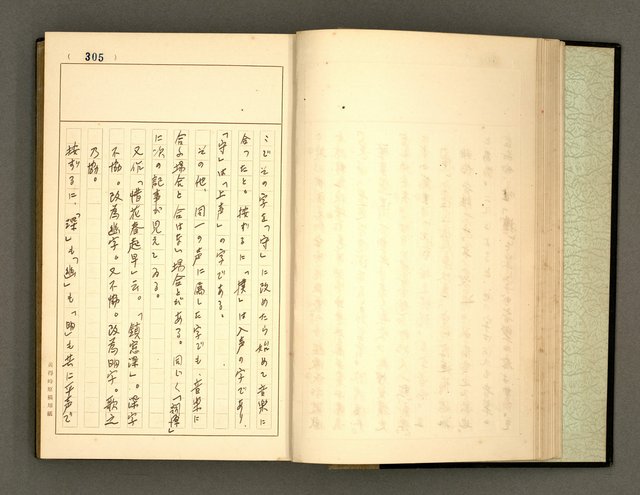 (305)
こでその字を「守」に改めたら始めて音楽に
合つたと。按ずるに「撲」は入声の字であり、
「守」は「上声」の字である。
その他、同一の声に属した字でも、音楽に
合ふ場合と合はない場合とがある。同じく「詞源」
に次の記事が見えてゐる。
又作「惜花春起早」云。「鎖窓深」。深字
不協。改為幽字。又不協。改為明字。歌之
乃協。
按ずるに、「深」も「幽」も「明」も共に平声で
黄得時原稿用紙